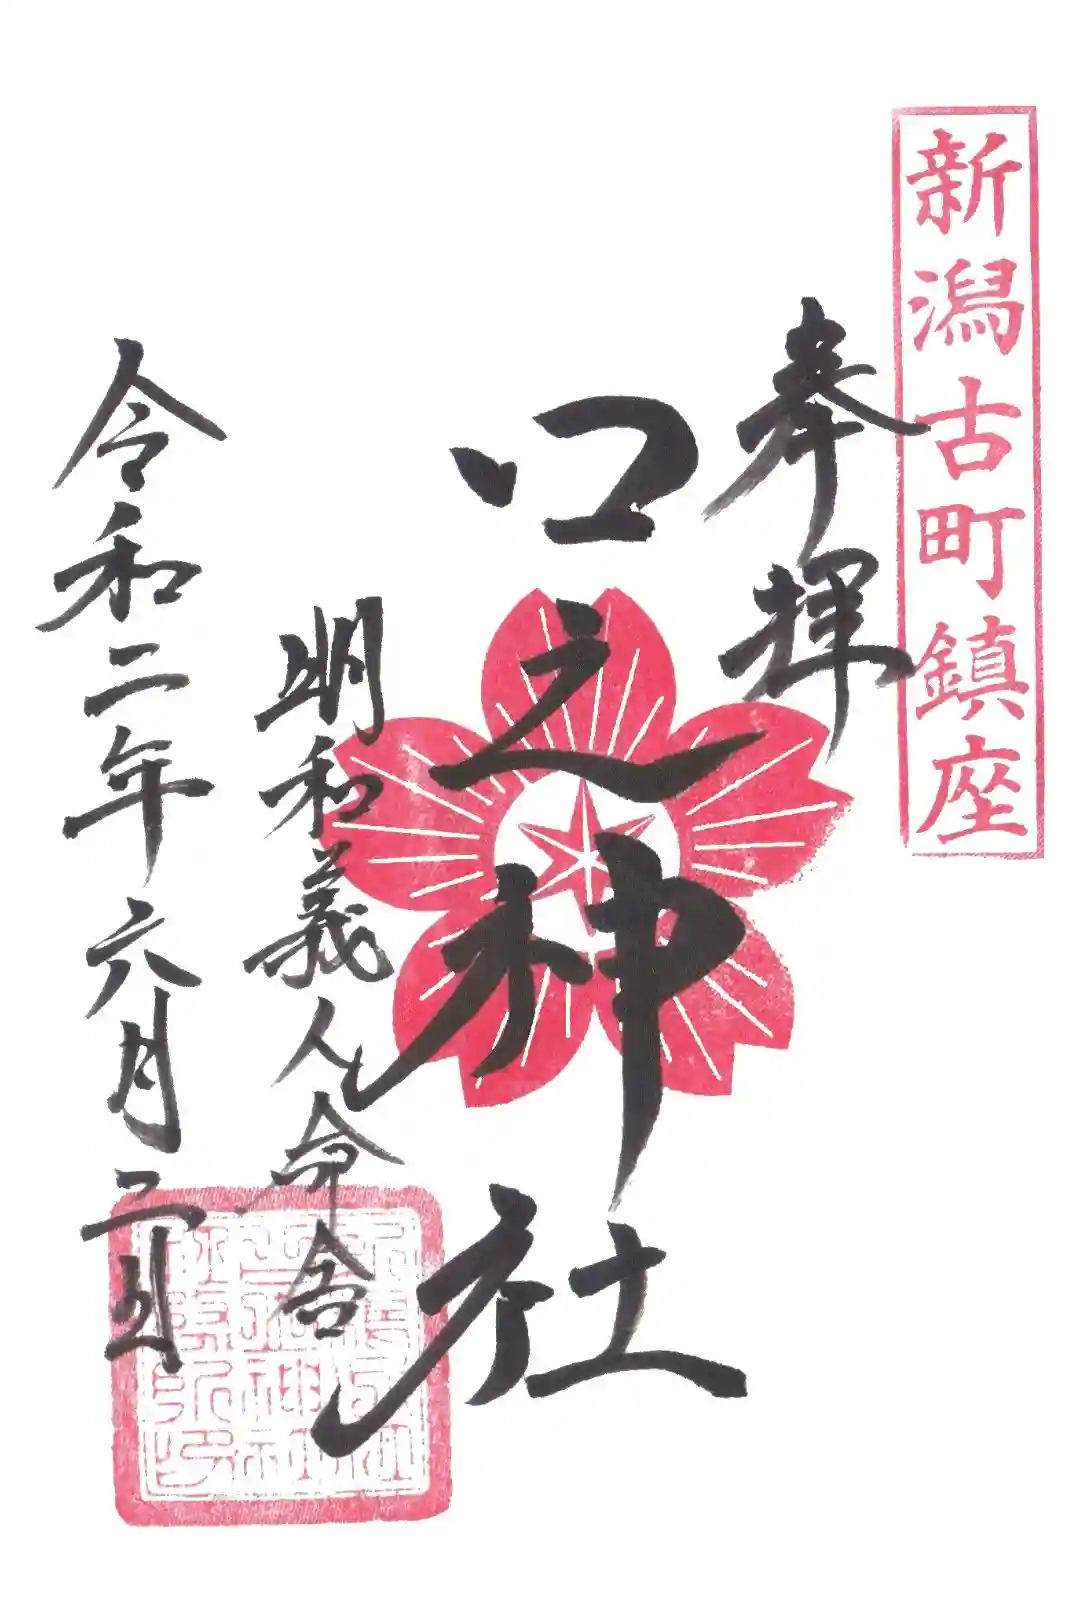 新潟古町鎮座
奉拝
口之神社
明和義人命合
令和二年六月二日